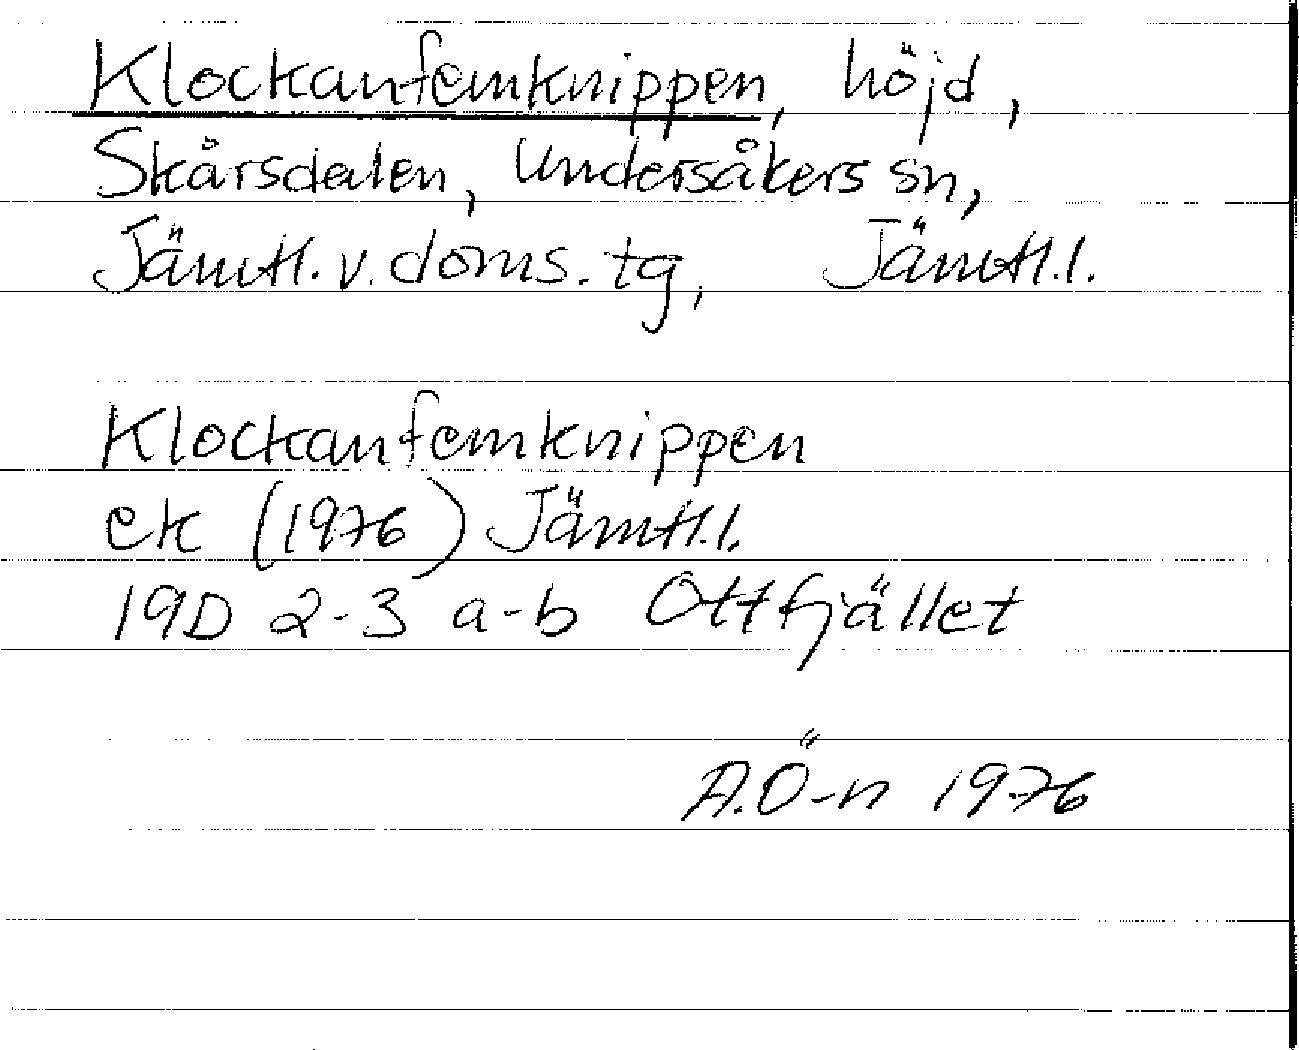 Klockanfemknippen, höjd,
Skårsdalen, Undersåkers sn,
Jämtl. v. doms. tg, Jämtl.l.
Klockanfemknippen
ek (1976) Jämtl.l.
19D 2-3 a-b Ottfjället
A.Ö-n 1976